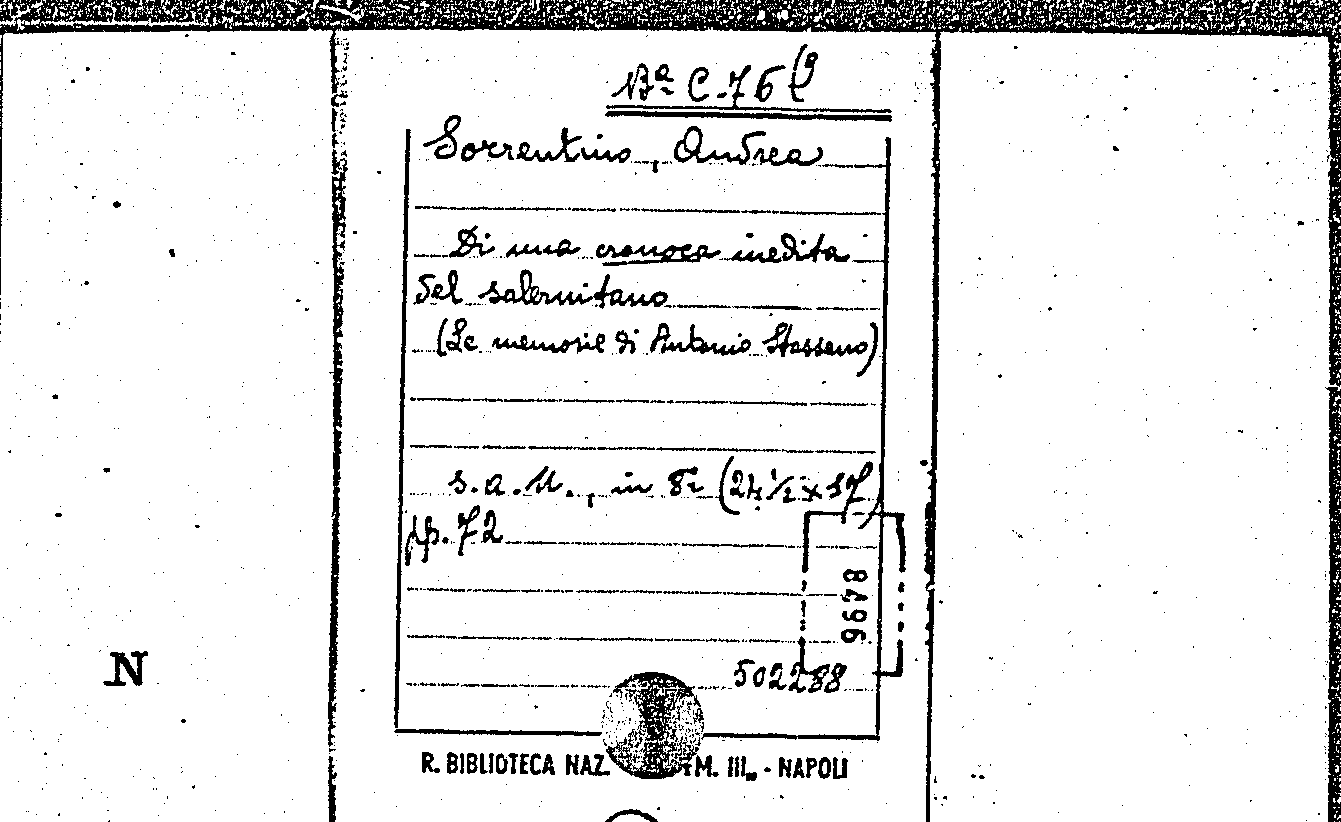 Bª C. 76 (9
Sorrentino, Andrea
Di una cronaca inedita
del salernitano
(Le memorie di Antonio Stassano)
s. a. n., in 8º (24 ½ x 17)
pp. 72
8496
502288
N
R. BIBLIOTECA NAZ. M. III„ - NAPOLI